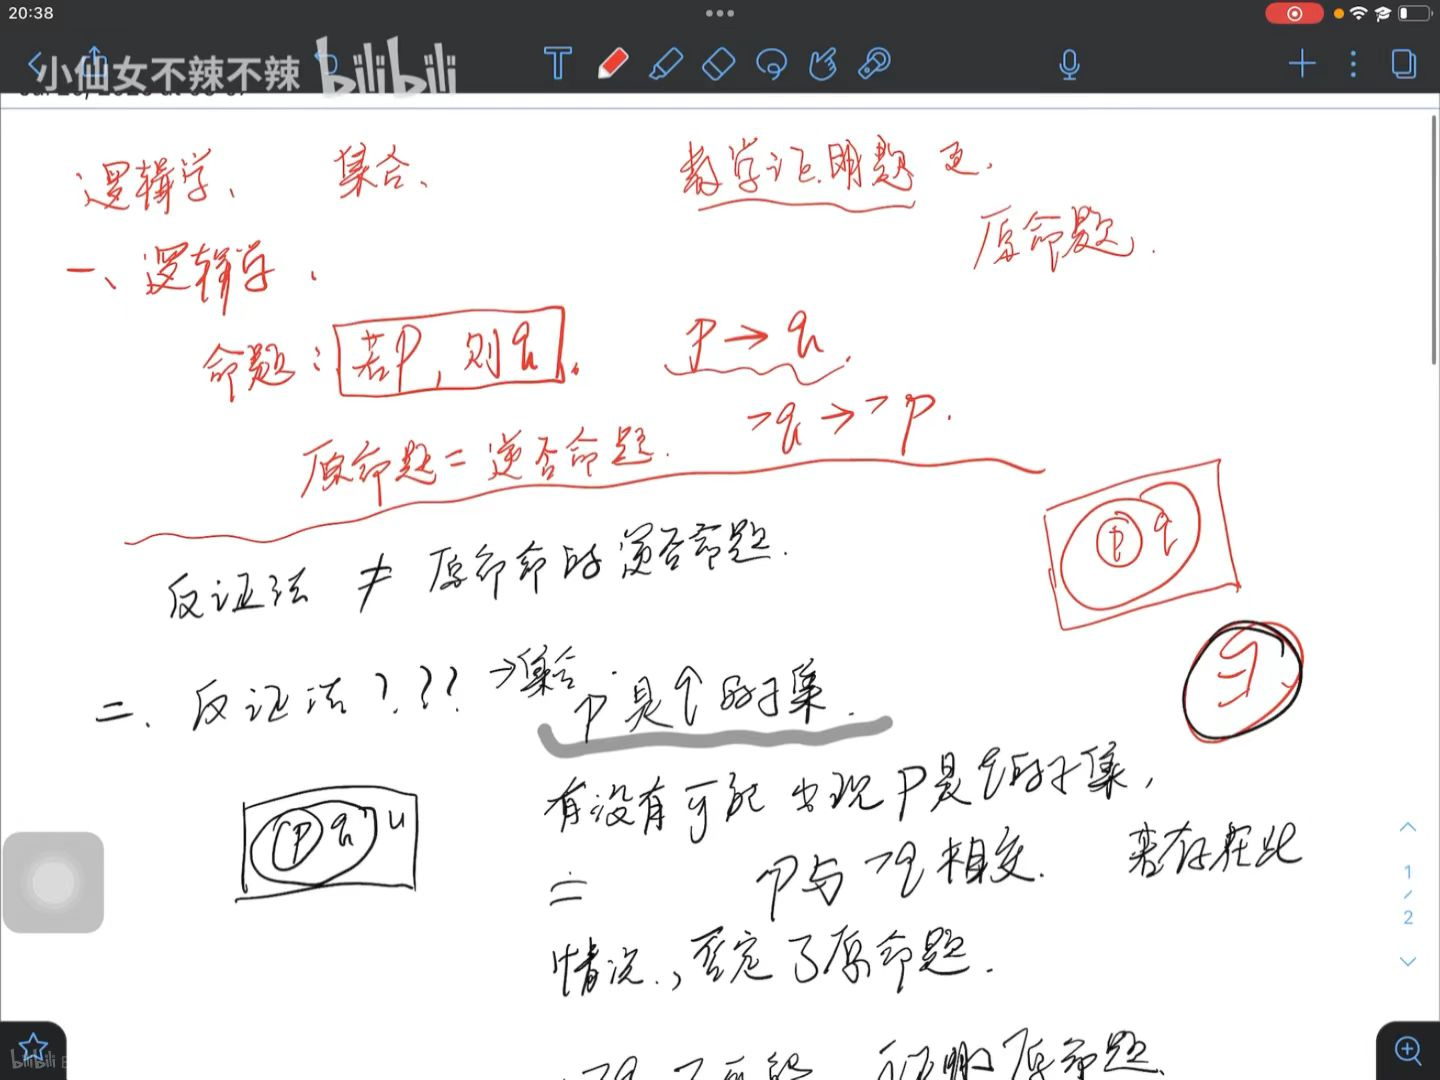 20:38
小仙女不辣不辣 bilibili
逻辑学、 集合、 数学证明题
原命题.
一、逻辑学.
命题: 若P, 则q. P→q.
¬q→¬p.
原命题=逆否命题.
反证法 ≠ 原命命的逆否命题.
P q
二、反证法??? →集合.
P是q的子集.
ヨ
有没有可能出现P是q的子集,
P q u
P与¬q相交. 若存在此
情况., 否定了原命题.
1
/
2
证明原命题.
bilibili